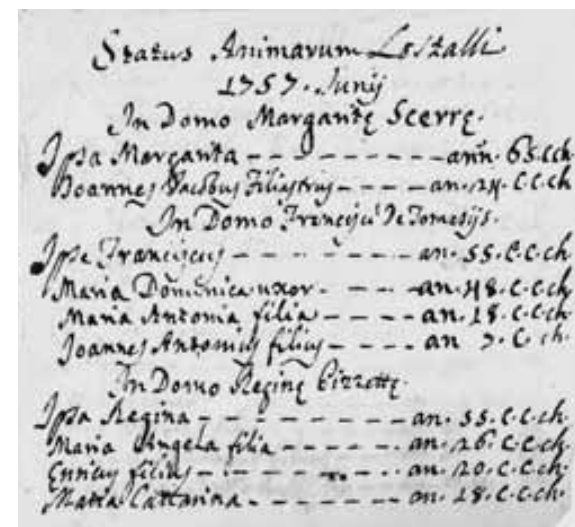 Status Animarum Lostalli
1757. Junij
In Domo Margaritę Scerrę.
Ipsa Margarita - - - - - - - - ann. 65. c.ch
Joannes Jacobus Filiastrius - - - an. 24. c.c.ch
In Domo Francisci De Tomasijs.
Ipse Franciscus - - - - - - - an. 55. c.c.ch.
Maria Domenica uxor - - - - an. 48. c.c.ch
Maria Antonia filia - - - - an. 18. c.c.ch
Joannes Antonius filius - - - - an 7. c. ch.
In Domo Reginę
Ipsa Regina - - - - - - - - an. 55. c.c.ch.
Maria Angela filia - - - - - - an. 26. c.c.ch.
Enricus filius - - - - - - - - an. 20. c.c.ch.
Maria Cattarina - - - - - - - an. 18. c.c.ch.